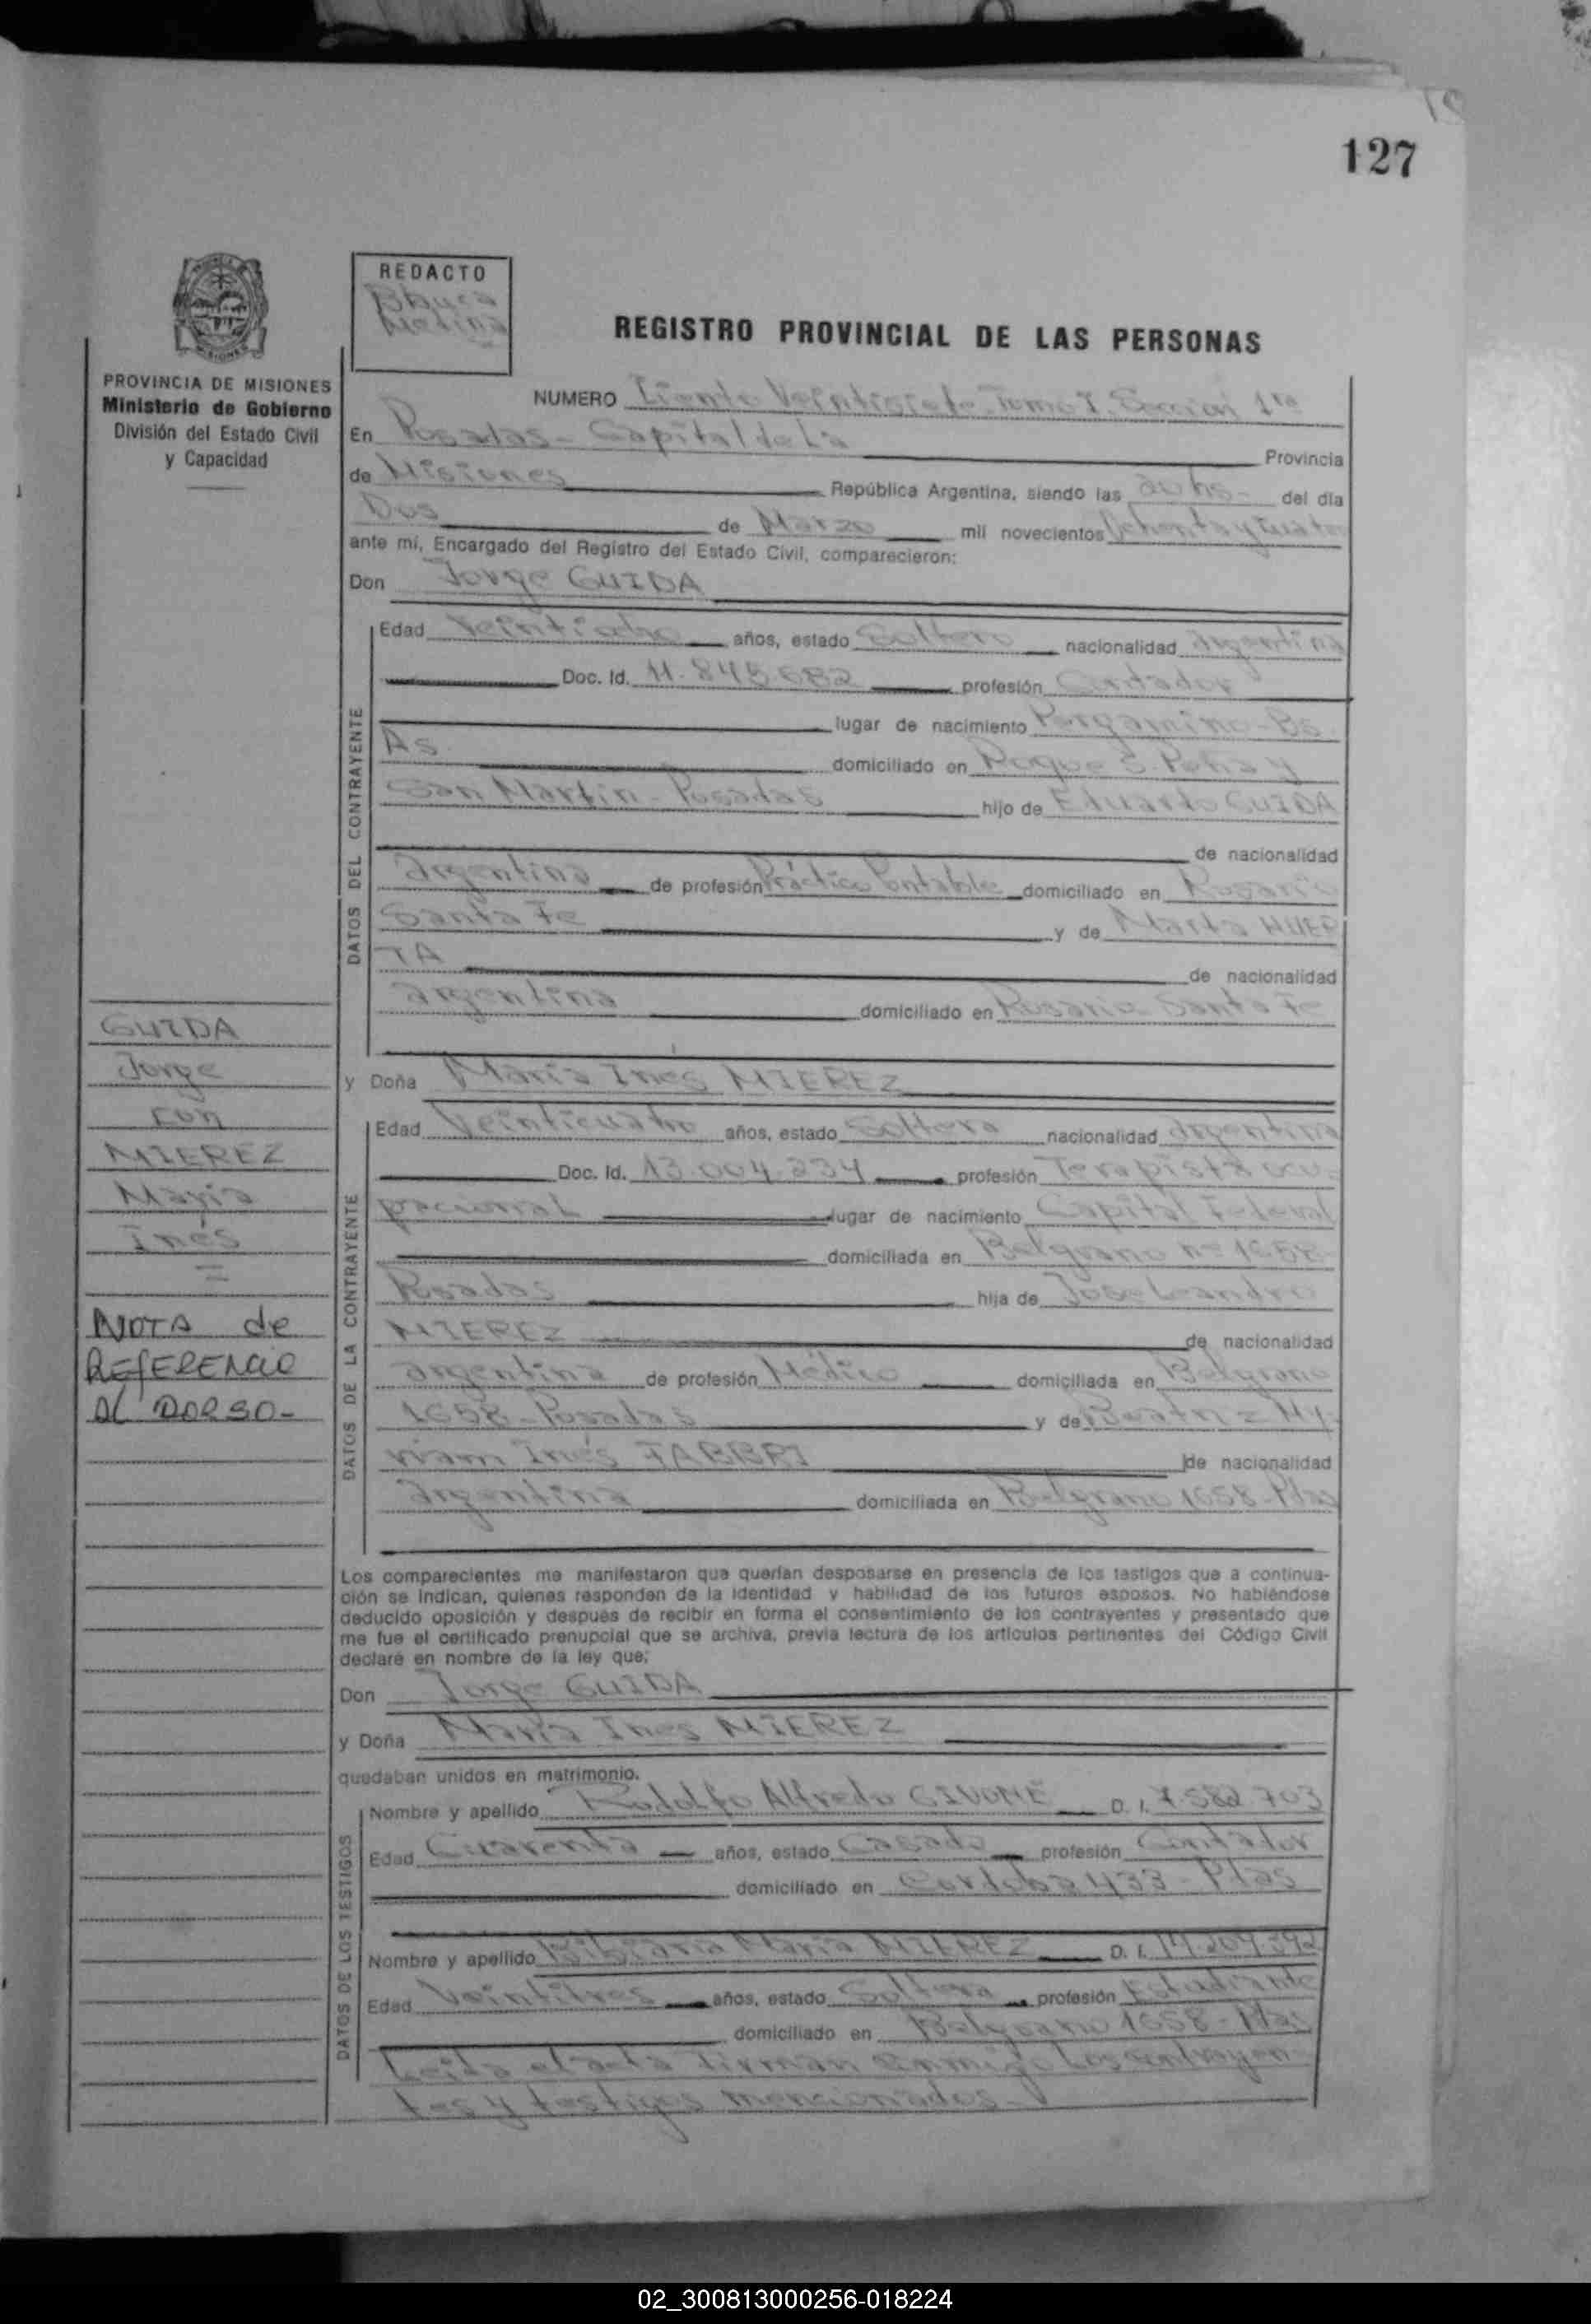 127
REDACTO
Molina
REGISTRO PROVINCIAL DE LAS PERSONAS
PROVINCIA DE MISIONES
Ministerio de Gobierno
División del Estado Civil
y Capacidad
NUMERO Ciento Veintisiete Tomo I. Sección 1ra
En Posadas - Capital de La Provincia
de Misiones República Argentina, siendo las 20 hs- del día
Dos de Marzo mil novecientos Ochenta y Cuatro
ante mí, Encargado del Registro del Estado Civil, comparecieron:
Don Jorge GUIDA
DATOS DEL CONTRAYENTE
Edad Veintiocho años, estado Soltero nacionalidad argentina
Doc. Id. 11.845.682 profesión Contador
lugar de nacimiento Pergamino - Bs.
As. domiciliado en Roque S. Peña y
San Martín - Posadas hijo de Eduardo GUIDA
de nacionalidad
argentina de profesión Práctico Contable domiciliado en Rosario
Santa Fe y de Marta HUER
TA de nacionalidad
argentina domiciliado en Rosario Santa Fe
y Doña María Inés MIEREZ
DATOS DE LA CONTRAYENTE
Edad Veinticuatro años, estado Soltera nacionalidad argentina
Doc. Id. 13.004.234 profesión Terapista ocu-
pacional lugar de nacimiento Capital Federal
domiciliada en Belgrano nº 1658-
Posadas hija de José Leandro
MIEREZ de nacionalidad
argentina de profesión Médico domiciliada en Belgrano
1658 - Posadas y de Beatriz My-
riam Inés FABBRI de nacionalidad
argentina domiciliada en Belgrano 1658 - Pdas
GUIDA
Jorge
con
MIEREZ
María
Inés
=
NOTA de
REFERENCIA
AL DORSO-
Los comparecientes me manifestaron que querían desposarse en presencia de los testigos que a continua-
ción se indican, quienes responden de la identidad y habilidad de los futuros esposos. No habiéndose
deducido oposición y después de recibir en forma el consentimiento de los contrayentes y presentado que
me fue el certificado prenupcial que se archiva, previa lectura de los artículos pertinentes del Código Civil
declaré en nombre de la ley que;
Don Jorge GUIDA
y Doña María Inés MIEREZ
quedaban unidos en matrimonio.
DATOS DE LOS TESTIGOS
Nombre y apellido Rodolfo Alfredo GIVONE D. I. 7.582.703
Edad Cuarenta años, estado Casado profesión Contador
domiciliado en Cordoba 433 - Pdas
Nombre y apellido Bibiana María MIEREZ D. I. 14.209.392
Edad Veintitres años, estado Soltera profesión Estudiante
domiciliado en Belgrano 1658 - Pdas
Leida el acta firman conmigo los contrayen
tes y testigos mencionados.-
02_300813000256-018224